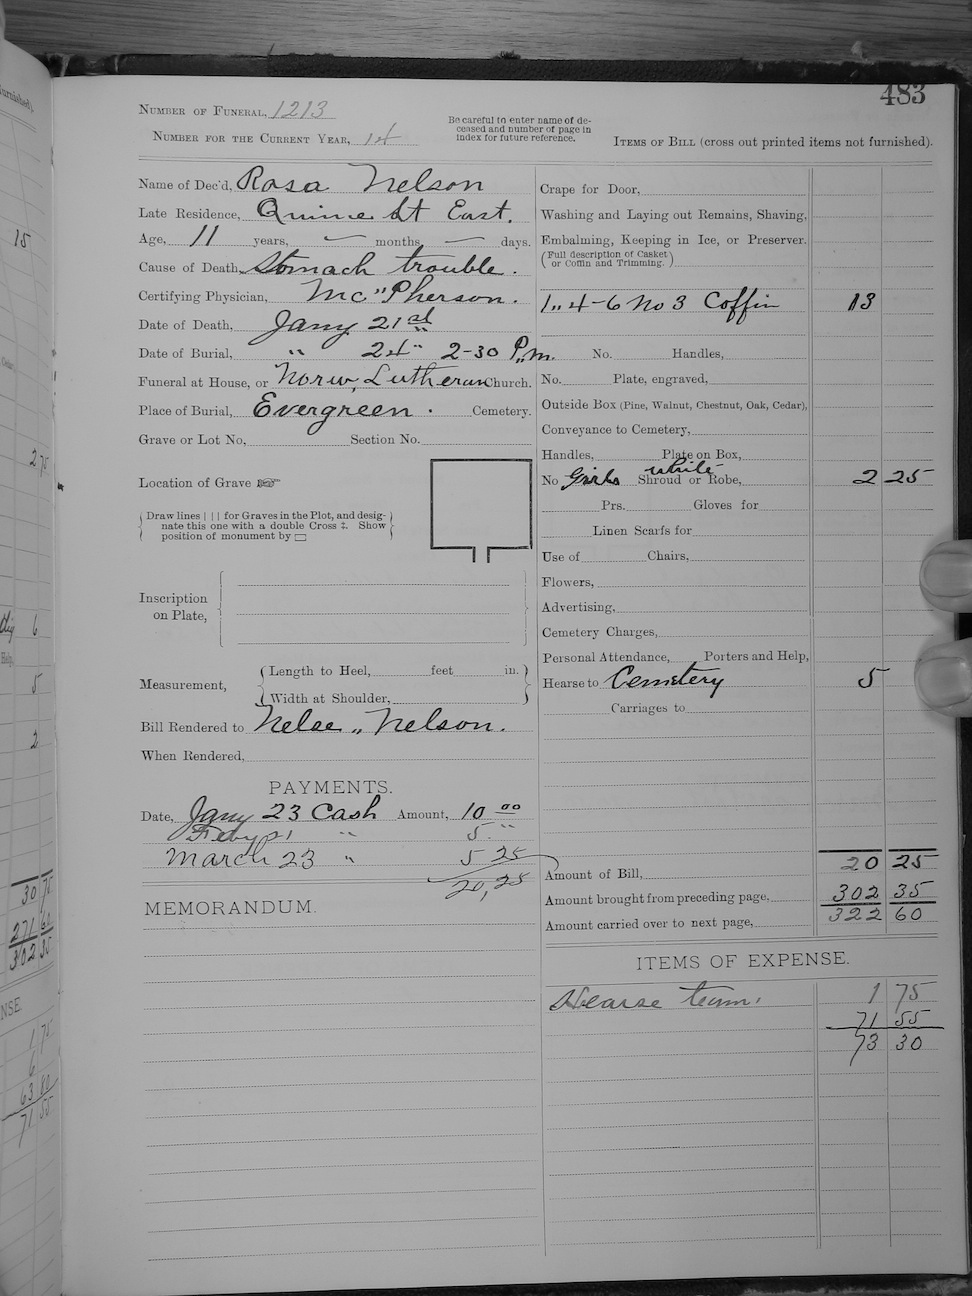 483
NUMBER OF FUNERAL, 1213
NUMBER FOR THE CURRENT YEAR, 14
Be careful to enter name of de-
ceased and number of page in
index for future reference.
ITEMS OF BILL (cross out printed items not furnished).
Name of Dec'd, Rosa Nelson
Late Residence, Quince St East.
Age, 11 years, — months, — days.
Cause of Death, Stomach trouble.
Certifying Physician, Mc"Pherson.
Date of Death, Jany 21st
Date of Burial, " 24" 2-30 P,,m.
Funeral at House, or Norw, Lutheran Church.
Place of Burial, Evergreen. Cemetery.
Grave or Lot No, Section No.
Location of Grave
Draw lines | | | for Graves in the Plot, and desig-
nate this one with a double Cross ‡. Show
position of monument by
Inscription
on Plate,
Measurement, Length to Heel, feet in.
Width at Shoulder,
Bill Rendered to Nelse ,, Nelson.
When Rendered,
PAYMENTS.
Date, Jany 23 Cash Amount, 10 00
Feby " 5 "
March 23 " 5 25
20,25
MEMORANDUM.
Crape for Door,
Washing and Laying out Remains, Shaving,
Embalming, Keeping in Ice, or Preserver.
(Full description of Casket
or Coffin and Trimming.)
1,, 4-6 No 3 Coffin 13
No. Handles,
No. Plate, engraved,
Outside Box (Pine, Walnut, Chestnut, Oak, Cedar),
Conveyance to Cemetery,
Handles, Plate on Box,
No Girls white Shroud or Robe, 2 25
Prs. Gloves for
Linen Scarfs for
Use of Chairs,
Flowers,
Advertising,
Cemetery Charges,
Personal Attendance, Porters and Help,
Hearse to Cemetery 5
Carriages to
Amount of Bill, 20 25
Amount brought from preceding page, 302 35
Amount carried over to next page, 322 60
ITEMS OF EXPENSE.
Hearse team, 1 75
71 55
73 30